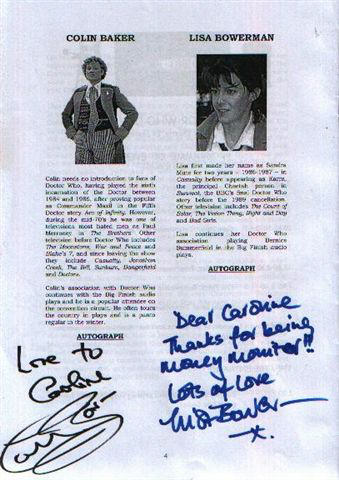 COLIN BAKER
Colin needs no introduction to fans of
Doctor Who, having played the sixth
incarnation of the Doctor between
1984 and 1986, after proving popular
as Commander Maxil in the Fifth
Doctor story Arc of Infinity. However,
during the mid-70's he was one of
television's most hated men as Paul
Merroney in The Brothers. Other
television before Doctor Who includes
The Moonstone, War and Peace and
Blake's 7, and since leaving the show
they include Casualty, Jonathan
Creek, The Bill, Sunburn, Dangerfield
and Doctors.
Colin's association with Doctor Who
continues with the Big Finish audio
plays and he is a popular attendee on
the convention circuit. He often tours
the country in plays and is a panto
regular in the winter.
AUTOGRAPH
Love to
Caroline
LISA BOWERMAN
Lisa first made her name as Sandra
Mute for two years – 1986-1987 – in
Casualty before appearing as Karra,
the principal Cheetah person in
Survival, the BBC's final Doctor Who
story before the 1989 cancellation.
Other television includes The Count of
Solar, The Vision Thing, Night and Day
and Bad Girls.
Lisa continues her Doctor Who
association playing Bernice
Summerfield in the Big Finish audio
plays.
AUTOGRAPH
Dear Caroline
Thanks for being
money monitor!!
Lots of love
x.
4